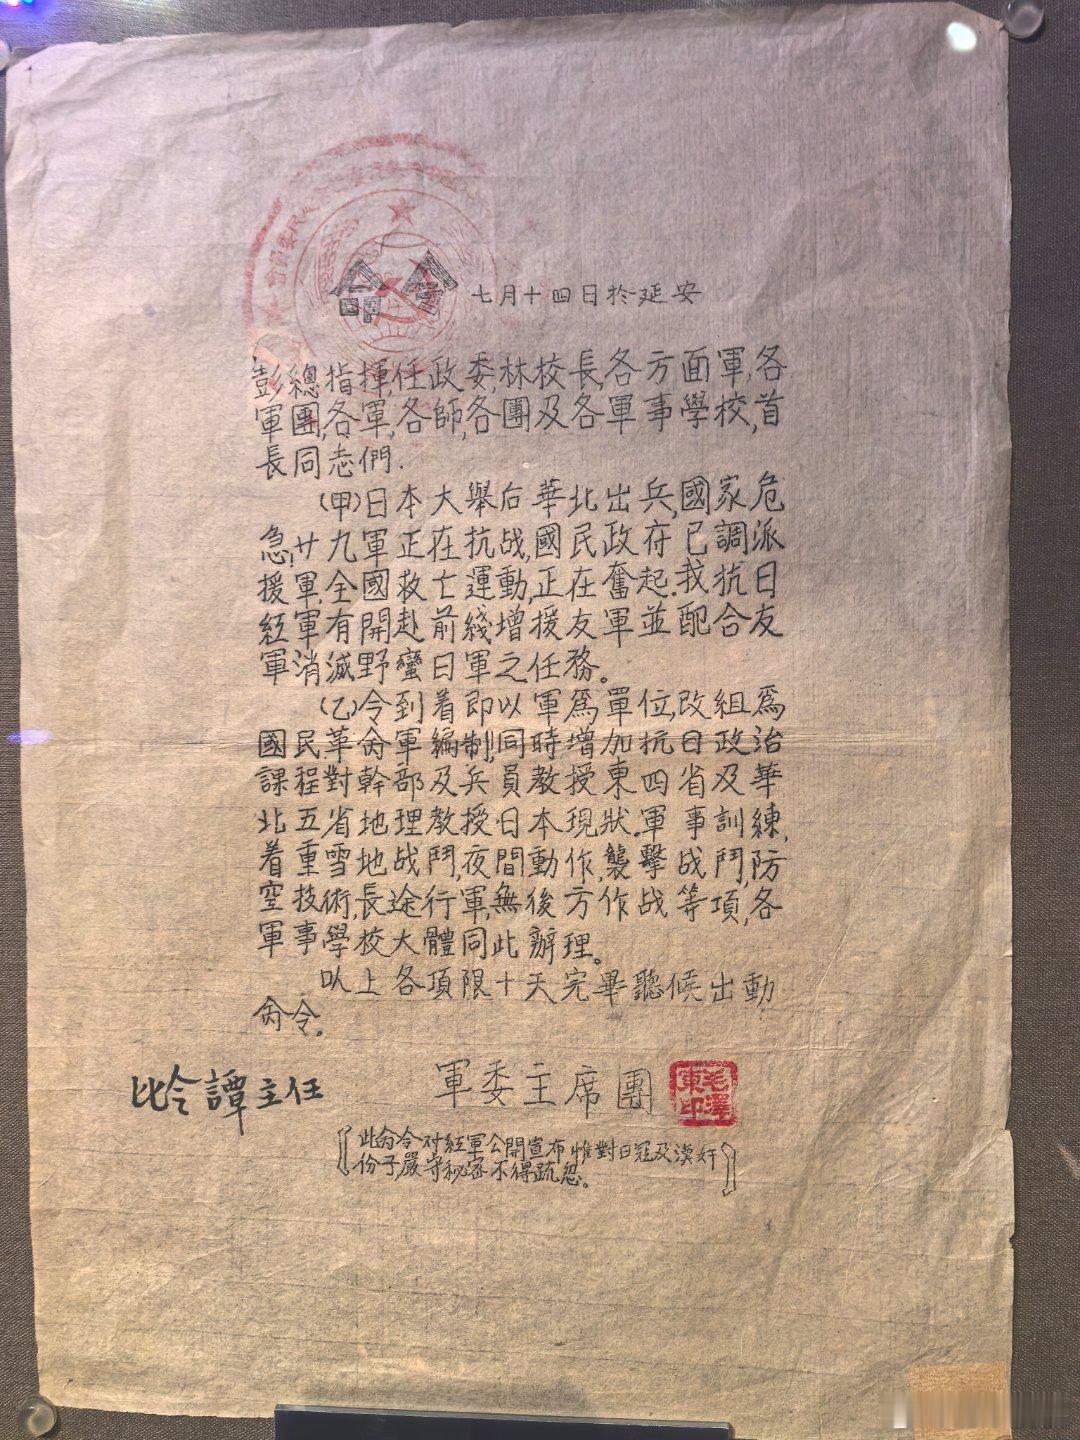 命令 七月十四日於延安
彭總指揮,任政委,林校長,各方面軍,各
軍團,各軍,各師,各團及各軍事學校,首
長同志們.
(甲)日本大舉后華北出兵,國家危
急,廿九軍正在抗战,國民政府已調派
援軍,全國救亡運動,正在奮起.我抗日
紅軍有開赴前綫增援友軍並配合友
軍消滅野蠻日軍之任務。
(乙)令到着即以軍爲單位,改組爲
國民革命軍編制,同時增加抗日政治
課程對幹部及兵員教授東四省及華
北五省地理教授日本現狀.軍事訓練,
着重雪地战鬥,夜間動作,襲擊战鬥,防
空技術,長途行軍,無後方作战等項,各
軍事學校大體同此辦理。
以上各項限十天完畢聽候出動
命令。
軍委主席團
毛澤東印
比令譚主任
此命令对紅軍公開宣布惟對日寇及漢奸
份子嚴守秘密不得疏忽。